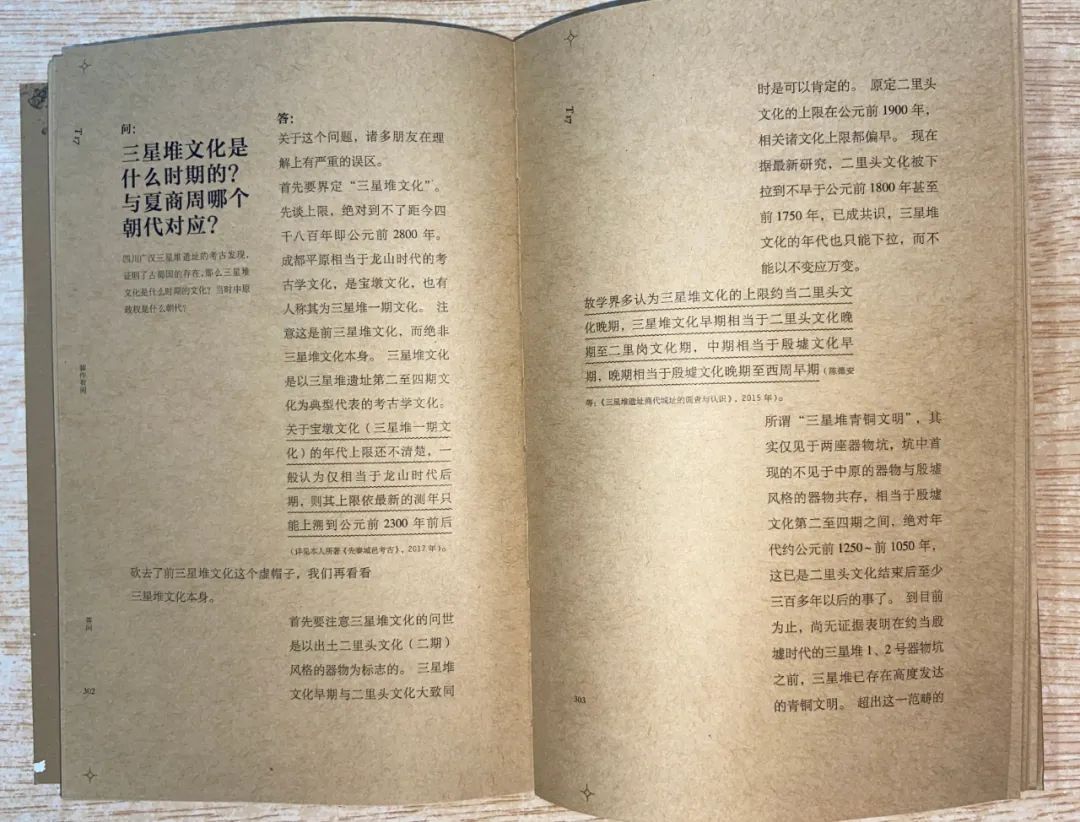 T 17
问：
三星堆文化是
什么时期的？
与夏商周哪个
朝代对应？
四川广汉三星堆遗址的考古发现，
证明了古蜀国的存在，那么三星堆
文化是什么时期的文化？当时中原
政权是什么朝代？
答：
关于这个问题，诸多朋友在理
解上有严重的误区。
首先要界定“三星堆文化”。
先谈上限，绝对到不了距今四
千八百年即公元前 2800 年。
成都平原相当于龙山时代的考
古学文化，是宝墩文化，也有
人称其为三星堆一期文化。 注
意这是前三星堆文化，而绝非
三星堆文化本身。 三星堆文化
是以三星堆遗址第二至四期文
化为典型代表的考古学文化。
关于宝墩文化（三星堆一期文
化）的年代上限还不清楚，一
般认为仅相当于龙山时代后
期，则其上限依最新的测年只
能上溯到公元前 2300 年前后
（详见本人所著《先秦城邑考古》，2017 年）。
砍去了前三星堆文化这个虚帽子，我们再看看
三星堆文化本身。
首先要注意三星堆文化的问世
是以出土二里头文化（二期）
风格的器物为标志的。 三星堆
文化早期与二里头文化大致同
答问
302
T 17
时是可以肯定的。 原定二里头
文化的上限在公元前 1900 年，
相关诸文化上限都偏早。 现在
据最新研究，二里头文化被下
拉到不早于公元前 1800 年甚至
前 1750 年，已成共识，三星堆
文化的年代也只能下拉，而不
能以不变应万变。
故学界多认为三星堆文化的上限约当二里头文
化晚期，三星堆文化早期相当于二里头文化晚
期至二里岗文化期，中期相当于殷墟文化早
期，晚期相当于殷墟文化晚期至西周早期（陈德安
等：《三星堆遗址商代城址的调查与认识》，2015 年）。
所谓“三星堆青铜文明”，其
实仅见于两座器物坑，坑中首
现的不见于中原的器物与殷墟
风格的器物共存，相当于殷墟
文化第二至四期之间，绝对年
代约公元前 1250~前 1050 年，
这已是二里头文化结束后至少
三百多年以后的事了。 到目前
为止，尚无证据表明在约当殷
墟时代的三星堆 1、2 号器物坑
之前，三星堆已存在高度发达
的青铜文明。 超出这一范畴的
303